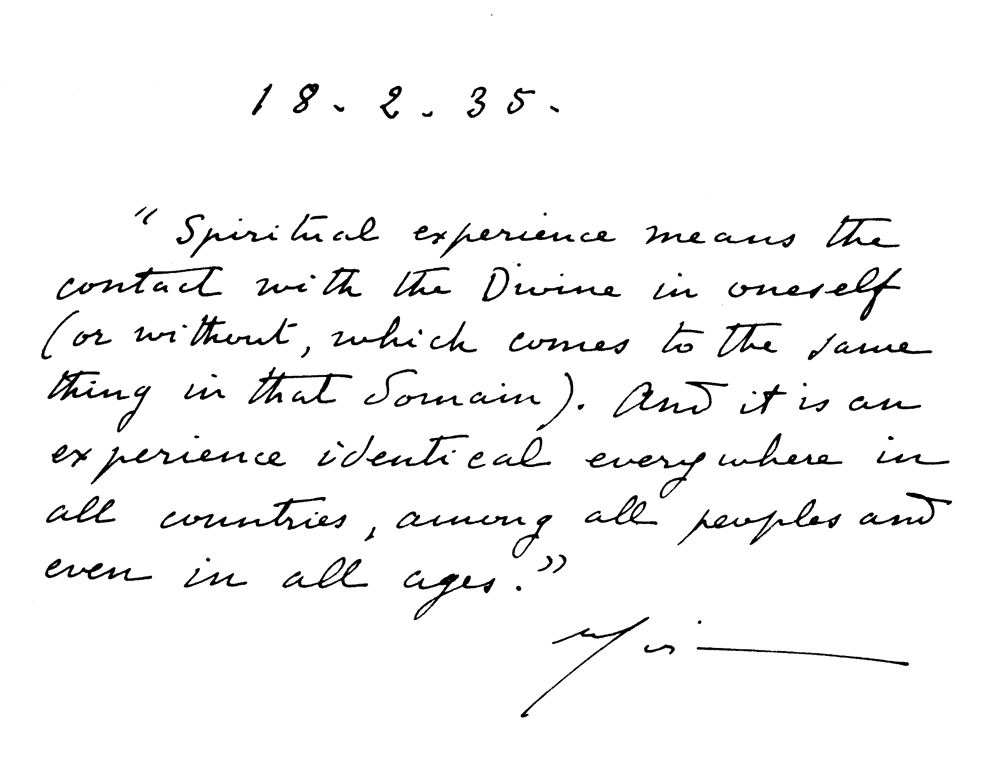 18-2-35-
"Spiritual experience means the
contact with the Divine in oneself
(or without, which comes to the same
thing in that domain). And it is an
experience identical everywhere in
all countries, among all peoples and
even in all ages."